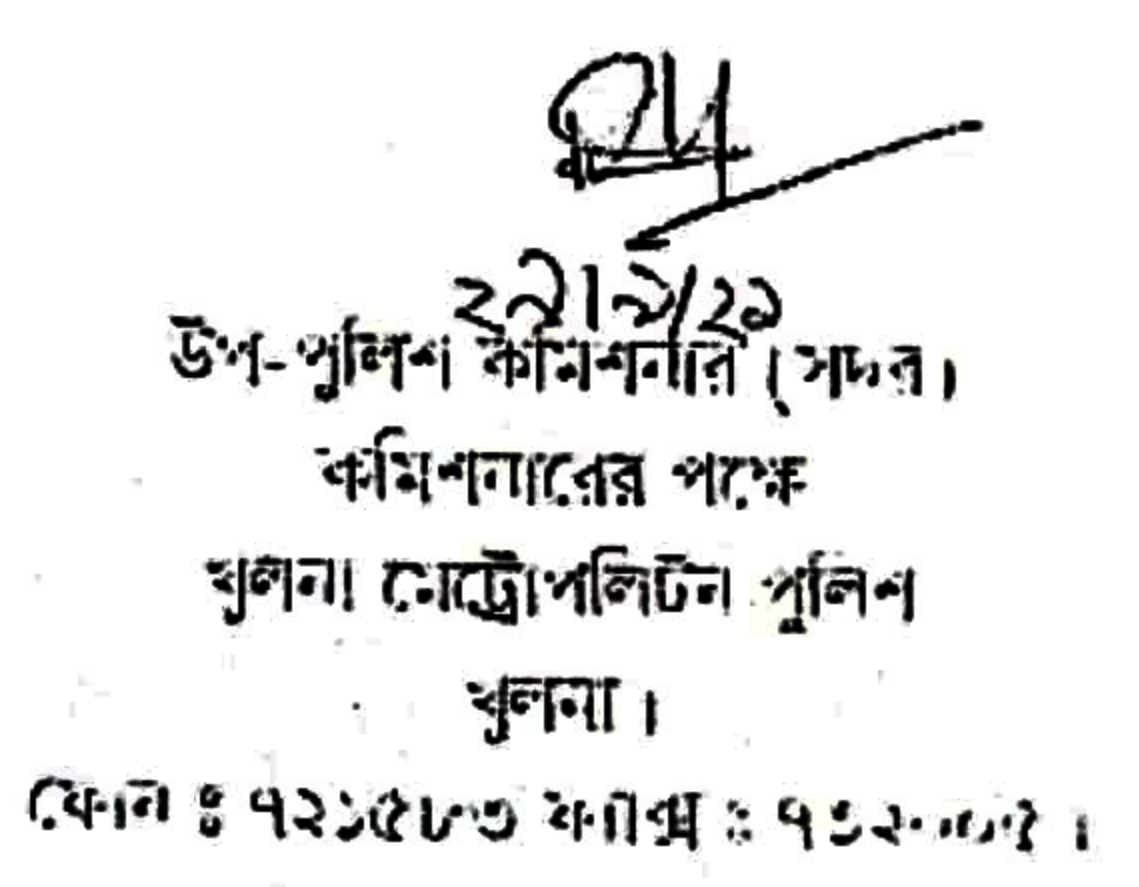 ২৯/৯/২১
উপ-পুলিশ কমিশনার (সদর)
কমিশনারের পক্ষে
খুলনা মেট্রোপলিটন পুলিশ
খুলনা।
ফোন ঃ ৭২১৫৮৩ ফ্যাক্স ঃ